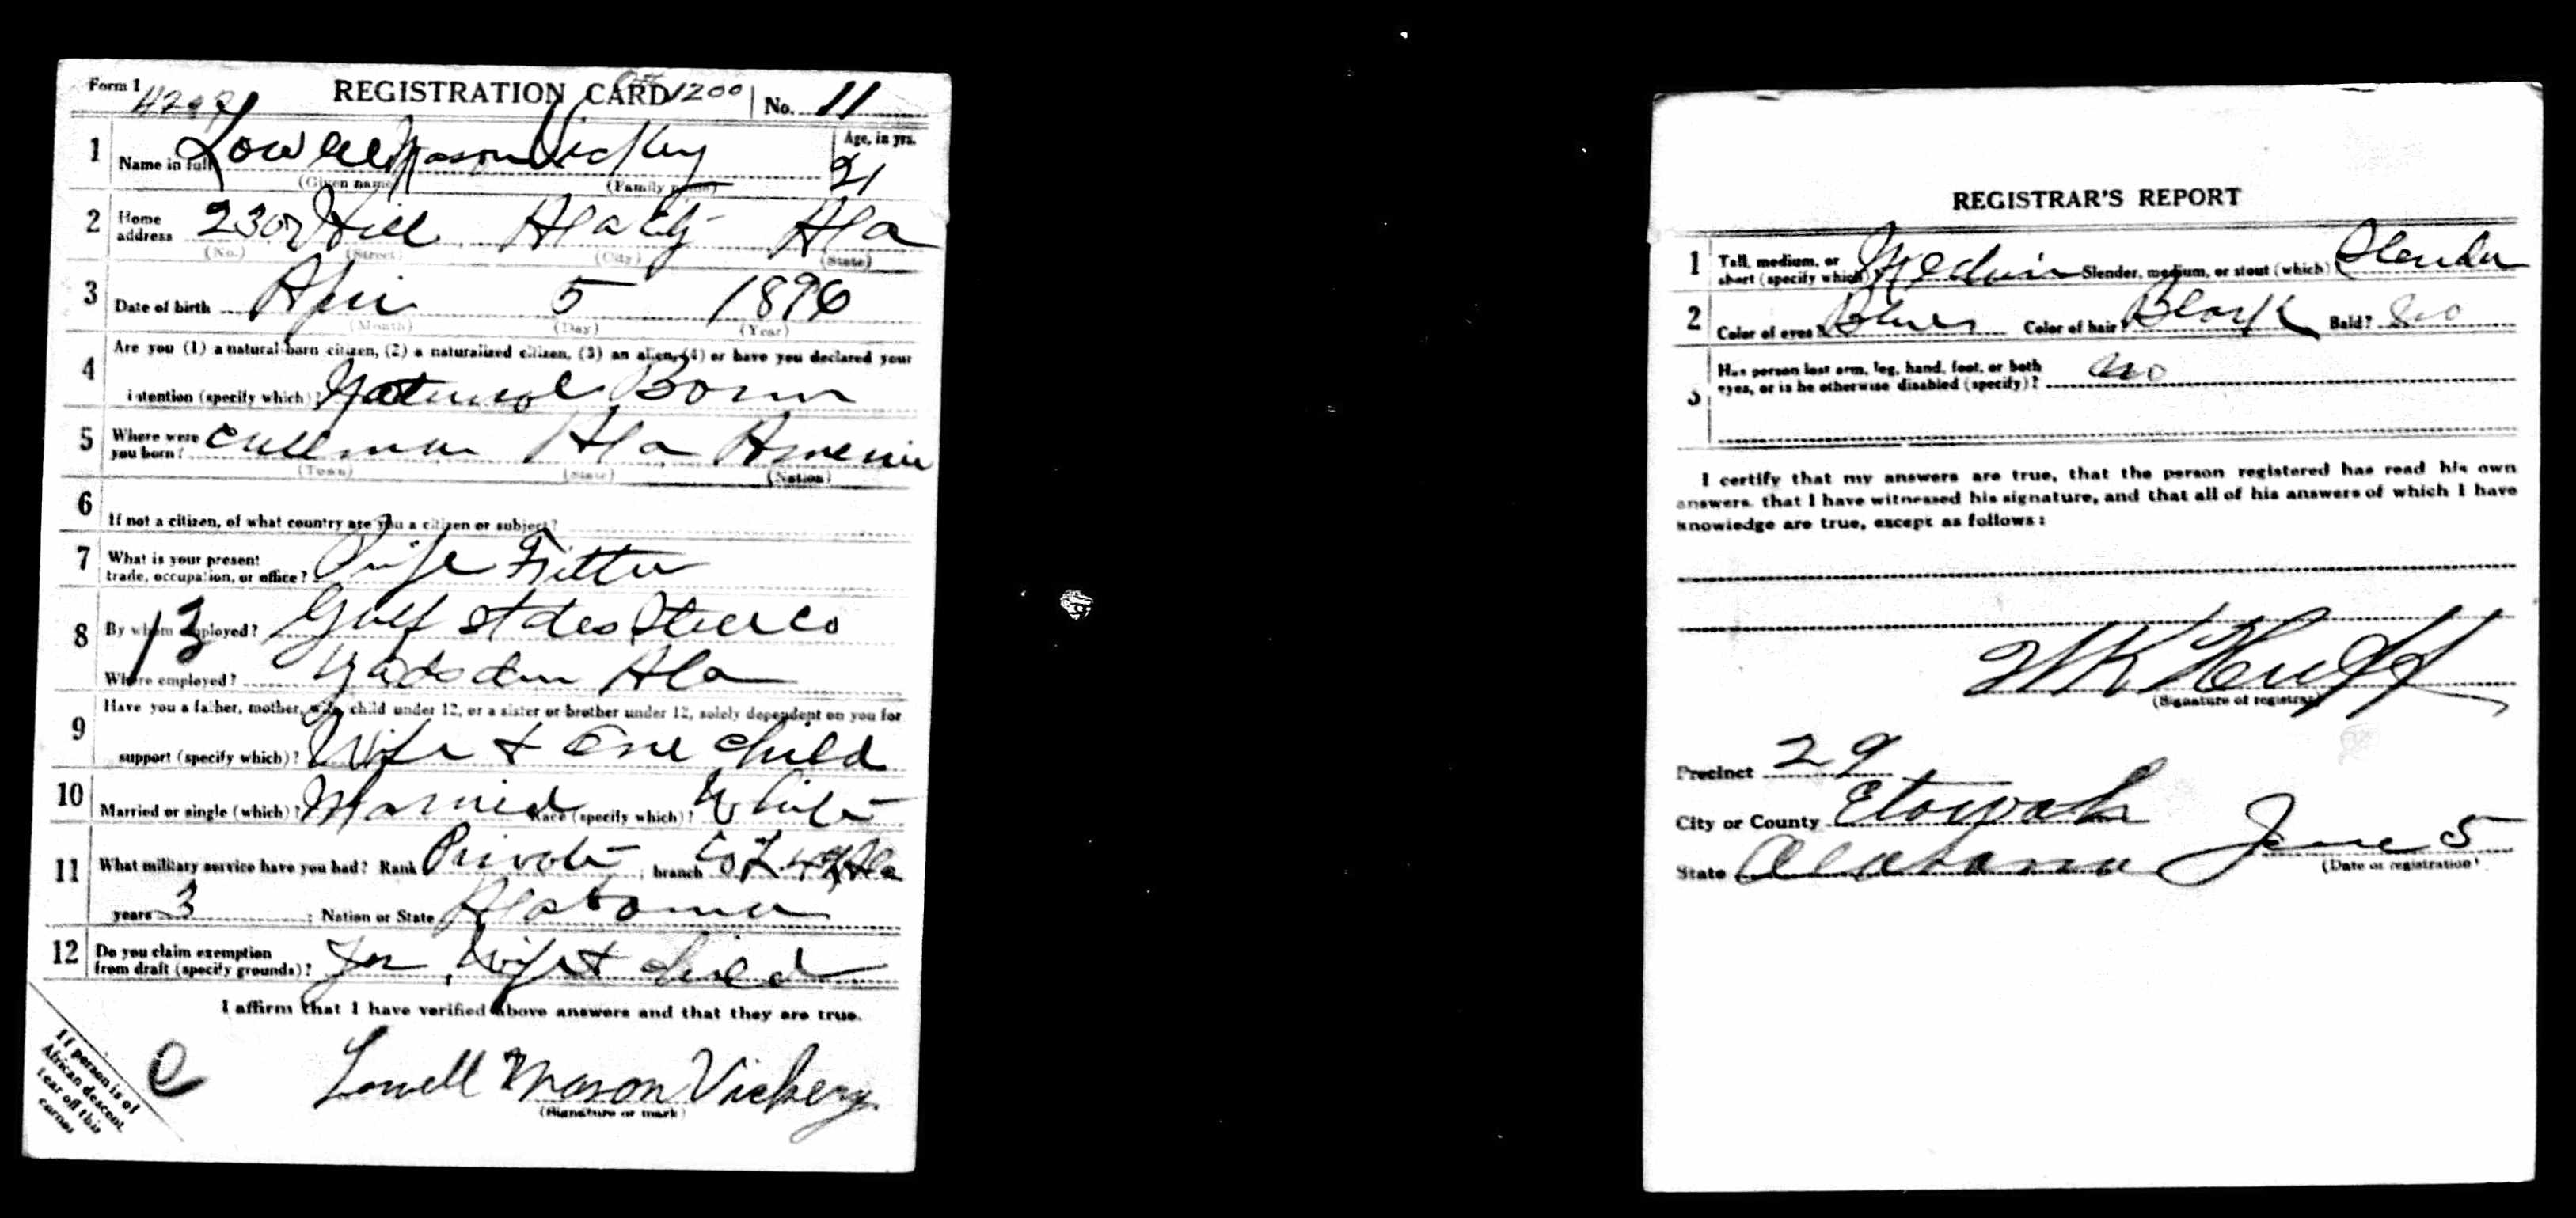 Form 1
REGISTRATION CARD 1200 No. 11
1 Name in full Lowell Mason Vickery Age, in yrs. 21
(Given name) (Family name)
2 Home address 230 Hill Ala City Ala
(No.) (Street) (City) (State)
3 Date of birth 5 1896
(Month) (Day) (Year)
4 Are you (1) a natural-born citizen, (2) a naturalized citizen, (3) an alien, (4) or have you declared your
intention (specify which)? Natural Born
5 Where were you born? Cullman Ala
(Town) (State) (Nation)
6 If not a citizen, of what country are you a citizen or subject?
7 What is your present
trade, occupation, or office? Pipe Fitter
8 By whom employed? Gulf States Steel Co
13
Where employed? Gadsden Ala
9 Have you a father, mother, wife, child under 12, or a sister or brother under 12, solely dependent on you for
support (specify which)? Wife + One child
10 Married or single (which)? Married Race (specify which)? White
11 What military service have you had? Rank Private ; branch Co
years 3 ; Nation or State Alabama
12 Do you claim exemption
from draft (specify grounds)? Yes, Wife + child
I affirm that I have verified above answers and that they are true.
Lowell Mason Vickery
(Signature or mark)
If person is of
African descent,
tear off this
corner
REGISTRAR'S REPORT
1 Tall, medium, or
short (specify which)? Medium Slender, medium, or stout (which)? Slender
2 Color of eyes? Blue Color of hair? Black Bald? No
3 Has person lost arm, leg, hand, foot, or both
eyes, or is he otherwise disabled (specify)? No
I certify that my answers are true, that the person registered has read his own
answers, that I have witnessed his signature, and that all of his answers of which I have
knowledge are true, except as follows:
(Signature of registrar)
Precinct 29
City or County Etowah
State Alabama June 5
(Date of registration)